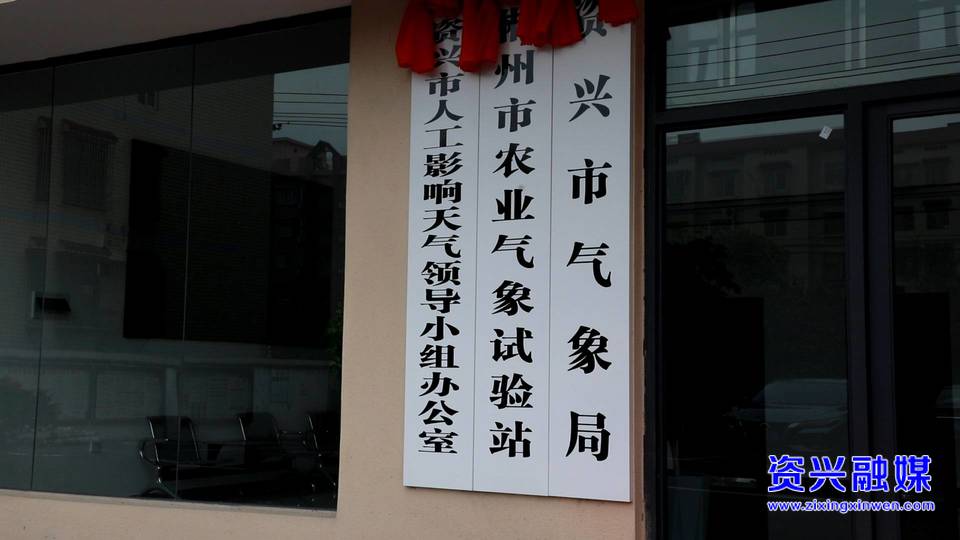 资兴市气象局
郴州市农业气象试验站
资兴市人工影响天气领导小组办公室
资兴融媒
www.zixingxinwen.com